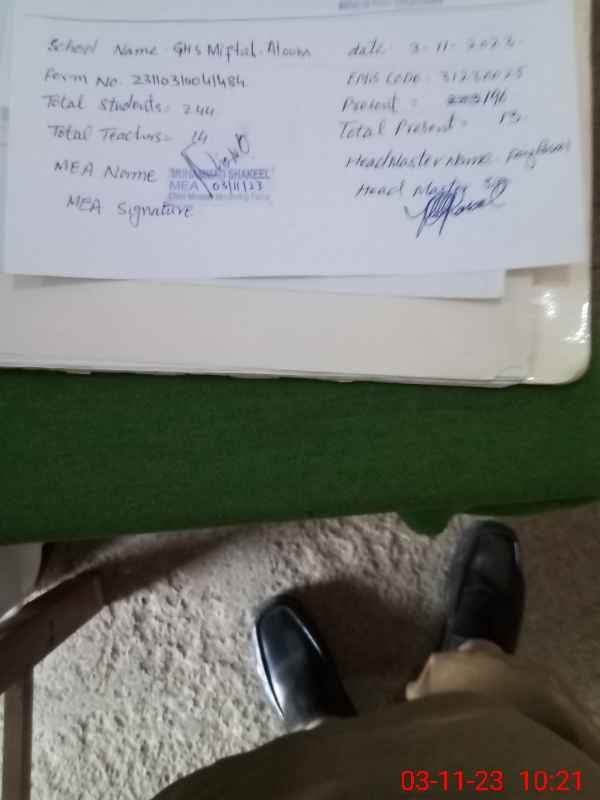 School Name - GHS Miftal-Aloom date 3-11-2023
Form No. 23110310041484 EMIS CODE: 31230025
Total Students: 244 Present = 196
Total Teachers = 14 Total Present = 13
MEA Name MUHAMMAD SHAKEEL HeadMaster Name -
MEA 03/11/23 Head Master
MEA Signature
03-11-23 10:21